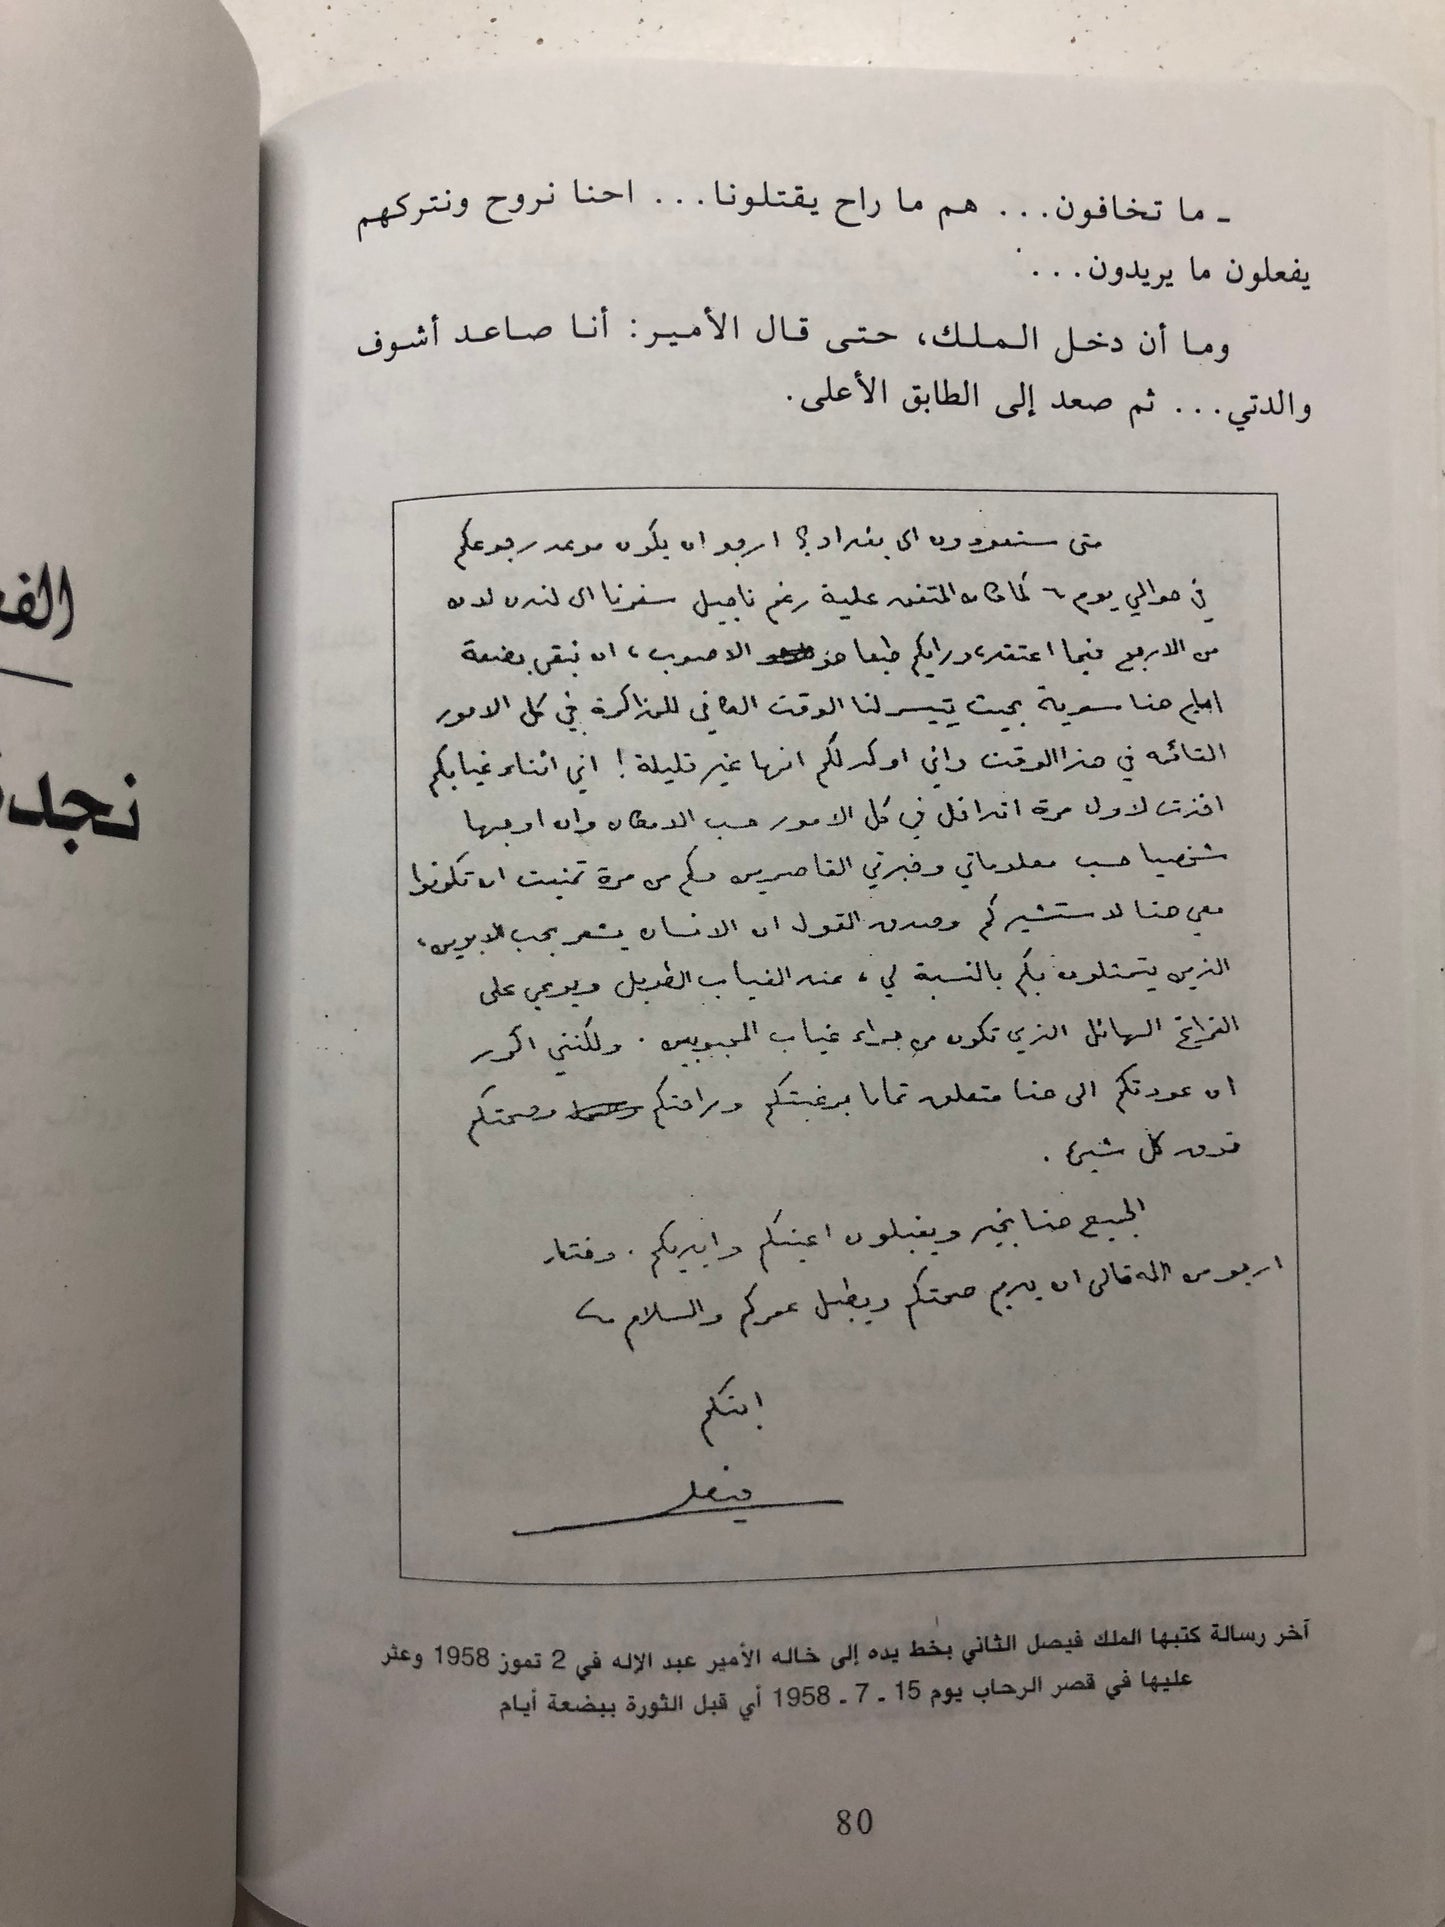 ـ ما تخافون... هم ما راح يقتلونا... احنا نروح ونتركهم
يفعلون ما يريدون...
وما أن دخل الملك، حتى قال الأمير: أنا صاعد أشوف
والدتي... ثم صعد إلى الطابق الأعلى.
متى ستعودون الى بغداد؟ ارجو ان يكون موعد رجوعكم
في حوالي يوم ٦ كما كان المتفق علية رغم تاجيل سفرنا الى لندن لان
من الارجح فيما اعتقد، ورايكم طبعا هو الاصوب، ان نبقى بضعة
ايام هنا سوية بحيث يتيسر لنا الوقت الكافي للمذاكرة في كل الامور
القائمه في هذا الوقت واني اوكد لكم انها غير قليلة! اني اثناء غيابكم
اخذت لاول مرة اتداخل في كل الامور حسب الامكان وان اوجهها
شخصيا حسب معلوماتي وخبرتي القاصرين وكم من مرة تمنيت ان تكونوا
معي هنا لاستشيركم وصدق القول ان الانسان يشعر بحب الابوين،
الذين يتمثلون بكم بالنسبة لي، عند الغياب الطويل ويوعي على
الفراغ الهائل الذي تكون من جراء غياب المحبوبين. ولكنني اكرر
ان عودتكم الى هنا متعلق تماما برغبتكم وراحتكم وصحتكم
فوق كل شيئ.
الجميع هنا بخير ويقبلون اعينكم وايديكم. وختاما
ارجو من الله تعالى ان يديم صحتكم ويطيل عمركم والسلام
ابنكم
فيصل
آخر رسالة كتبها الملك فيصل الثاني بخط يده إلى خاله الأمير عبد الإله في 2 تموز 1958 وعثر
عليها في قصر الرحاب يوم 15 ـ 7 ـ 1958 أي قبل الثورة ببضعة أيام
80